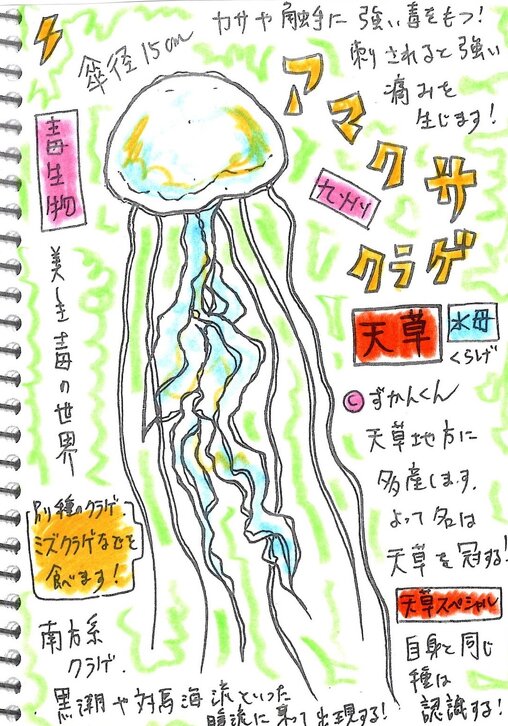 カサや触手に強い毒をもつ!
刺されると強い
痛みを
生じます!
傘径15cm
アマクサ
クラゲ
九州
毒生物
美しき毒の世界
天草
水母
くらげ
©ずかんくん
天草地方に
多産します.
よって名は
天草を冠する!
別種のクラゲ、
ミズクラゲなどを
食べます!
天草スペシャル
自身と同じ
種は
認識する!
南方系
クラゲ.
黒潮や対馬海流といった
暖流に乗って出現する!